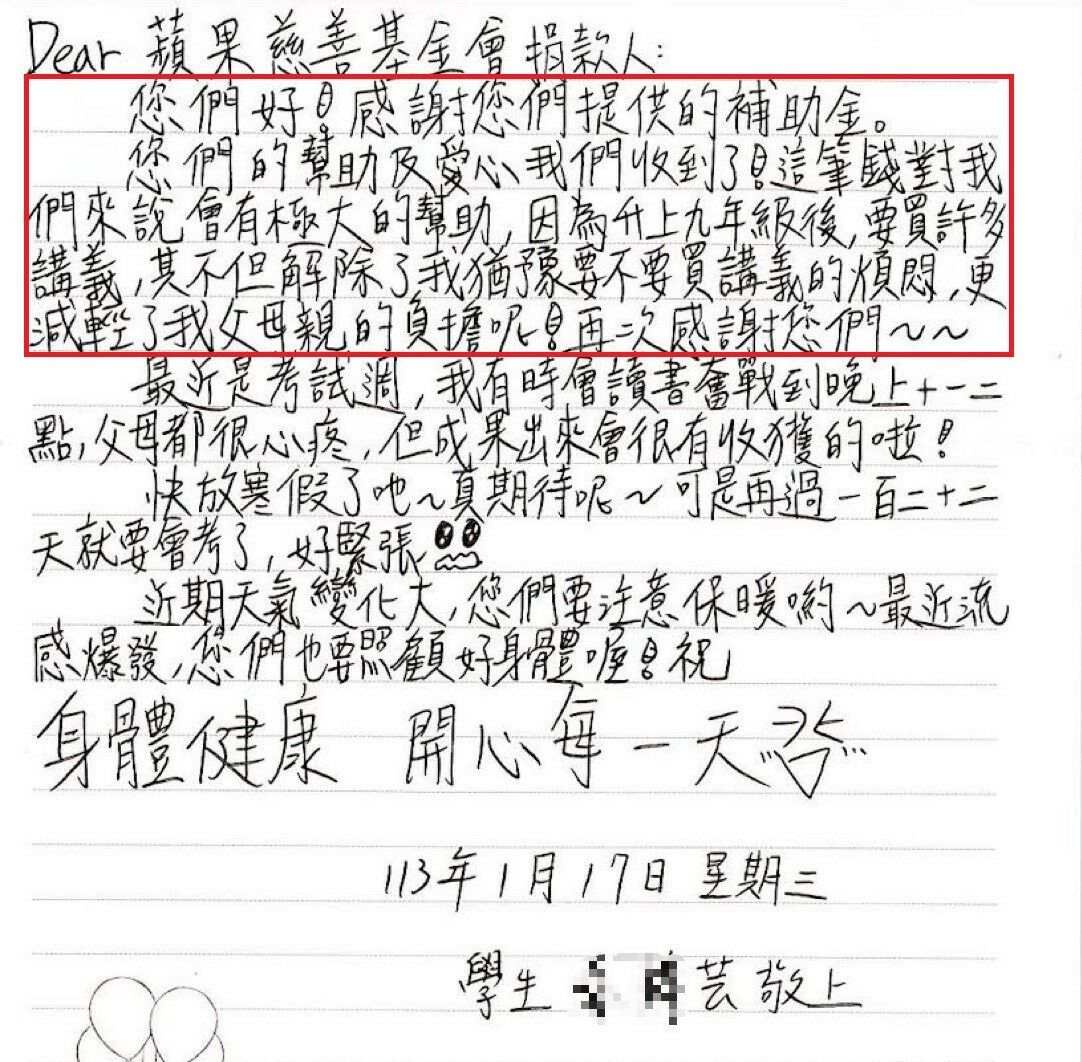 Dear 蘋果慈善基金會捐款人:
您們好!感謝您們提供的補助金。
您們的幫助及愛心我們收到了!這筆錢對我
們來說會有極大的幫助,因為升上九年級後,要買許多
講義,其不但解除了我猶豫要不要買講義的煩悶,更
減輕了我父母親的負擔呢!再次感謝您們~~
最近是考試週,我有時會讀書奮戰到晚上十一二
點,父母都很心疼,但成果出來會很有收獲的啦!
快放寒假了吔~真期待呢~可是再過一百二十二
天就要會考了,好緊張
近期天氣變化大,您們要注意保暖喲~最近流
感爆發,您們也要照顧好身體喔!祝
身體健康 開心每一天
113年1月17日 星期三
學生 芸敬上